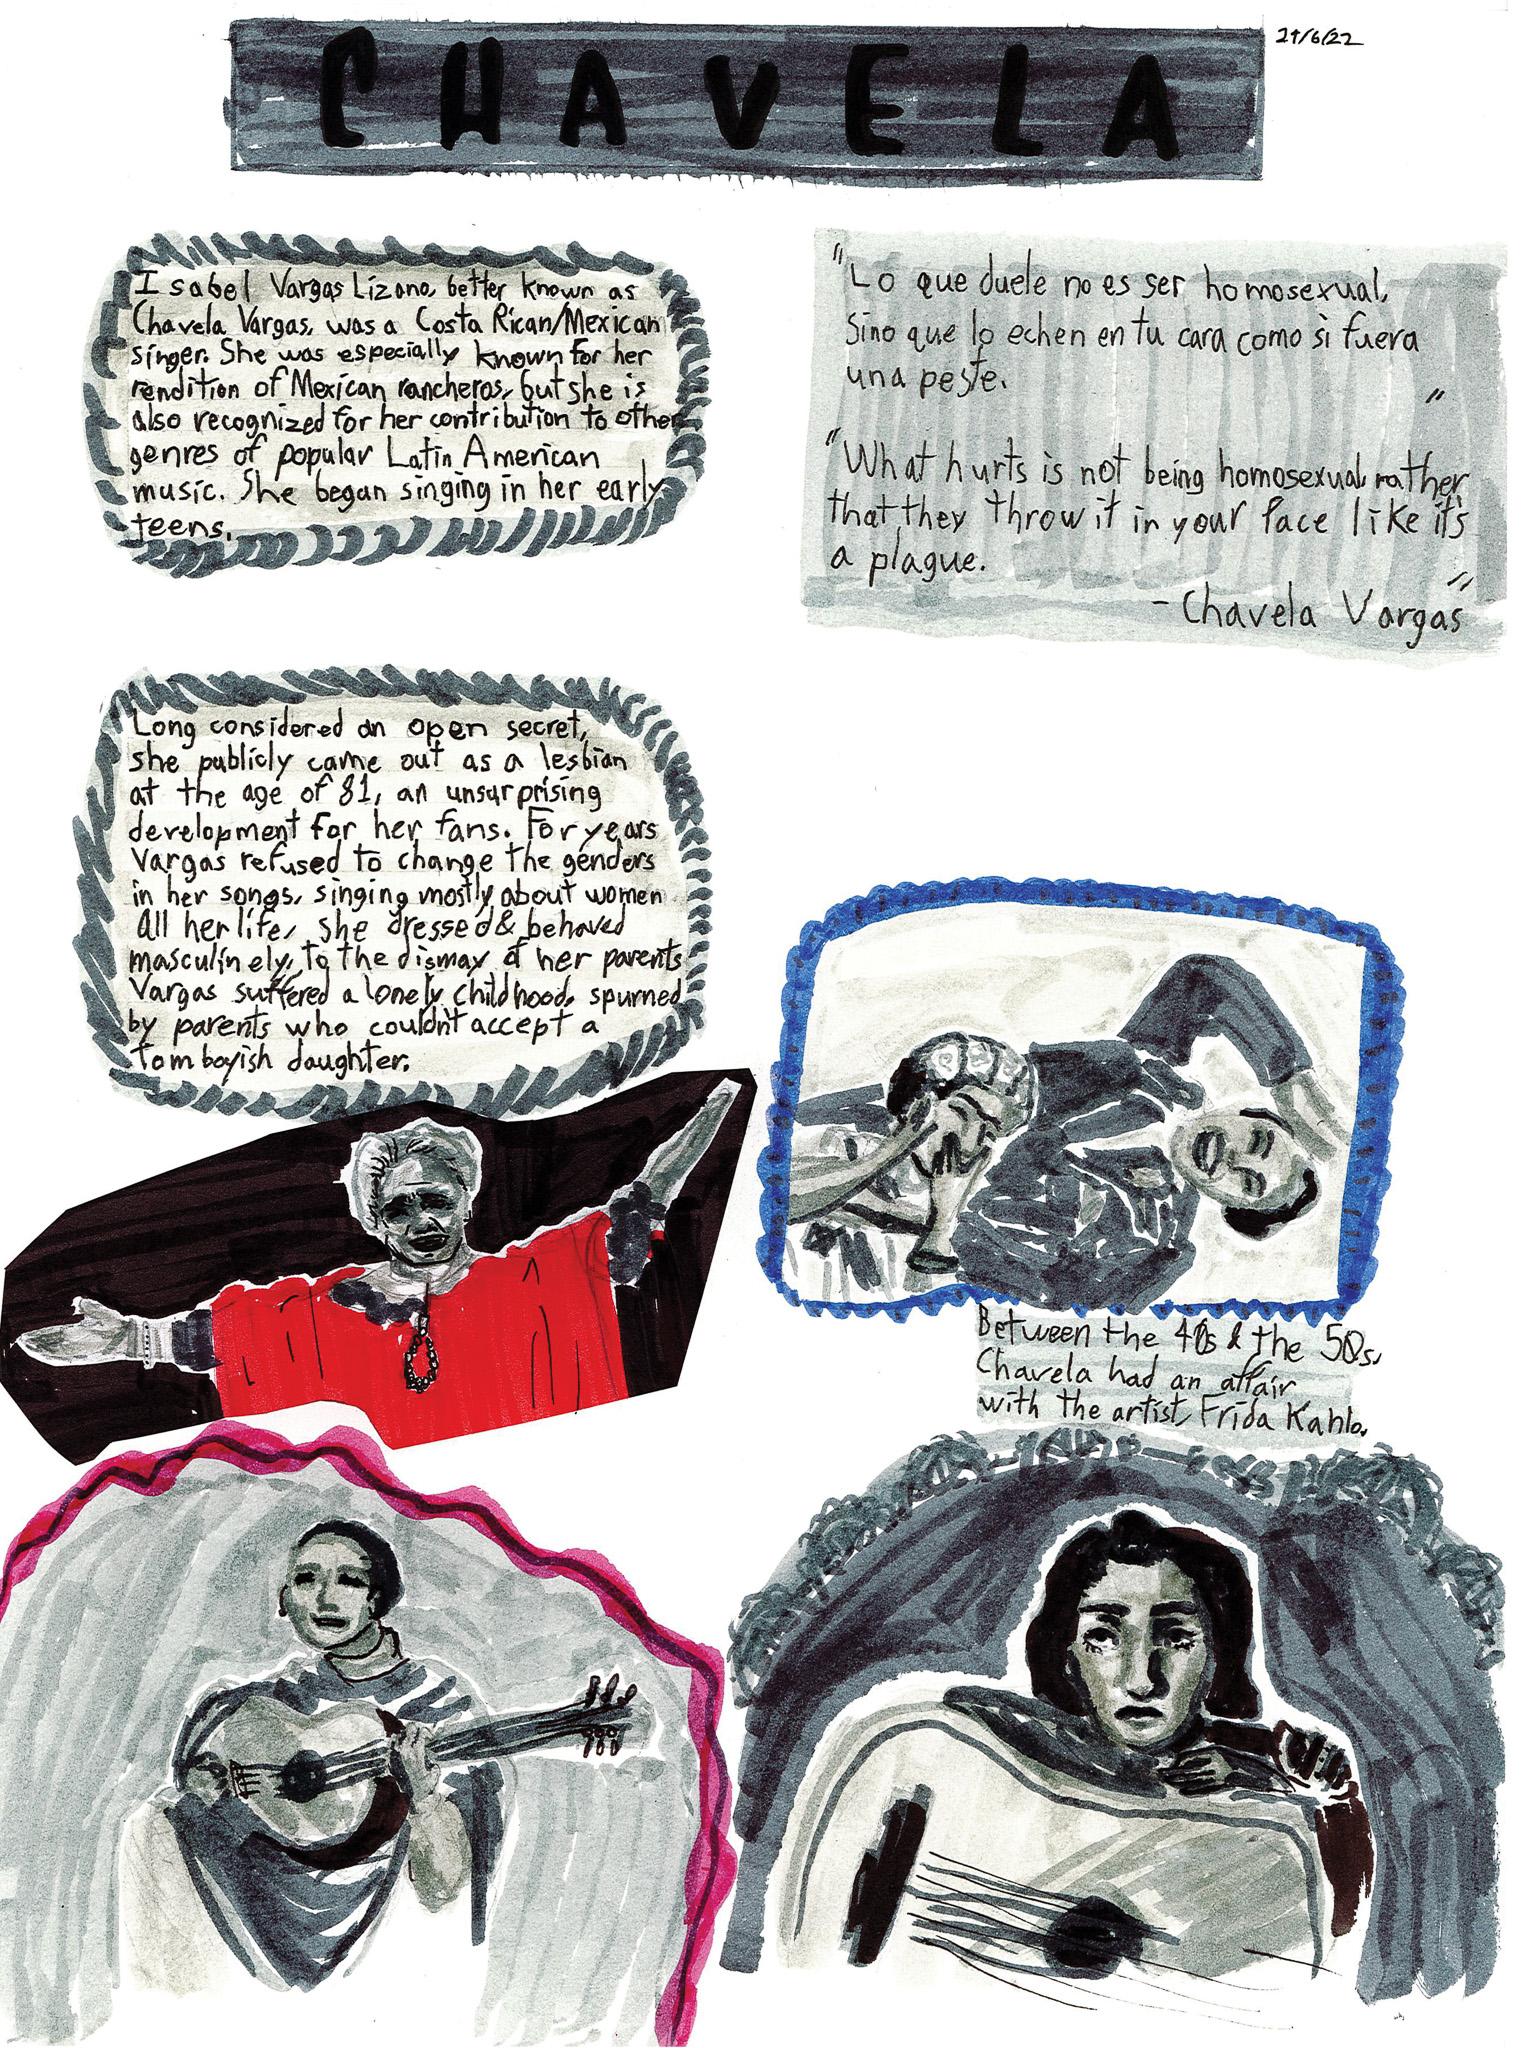 CHAVELA
29/6/22
Isabel Vargas Lizano, better known as
Chavela Vargas, was a Costa Rican/Mexican
singer. She was especially known for her
rendition of Mexican rancheros, but she is
also recognized for her contribution to other
genres of popular Latin American
music. She began singing in her early
teens.
"Lo que duele no es ser homosexual,
Sino que lo echen en tu cara como si fuera
una peste.
"
"What hurts is not being homosexual, rather
that they throw it in your face like it's
a plague.
"
- Chavela Vargas
Long considered an open secret,
she publicly came out as a lesbian
at the age of 81, an unsurprising
development for her fans. For years
Vargas refused to change the genders
in her songs, singing mostly about women
All her life, she dressed & behaved
masculinely, to the dismay of her parents
Vargas suffered a lonely childhood, spurned
by parents who couldn't accept a
tomboyish daughter.
Between the 40s & the 50s,
Chavela had an affair
with the artist, Frida Kahlo.